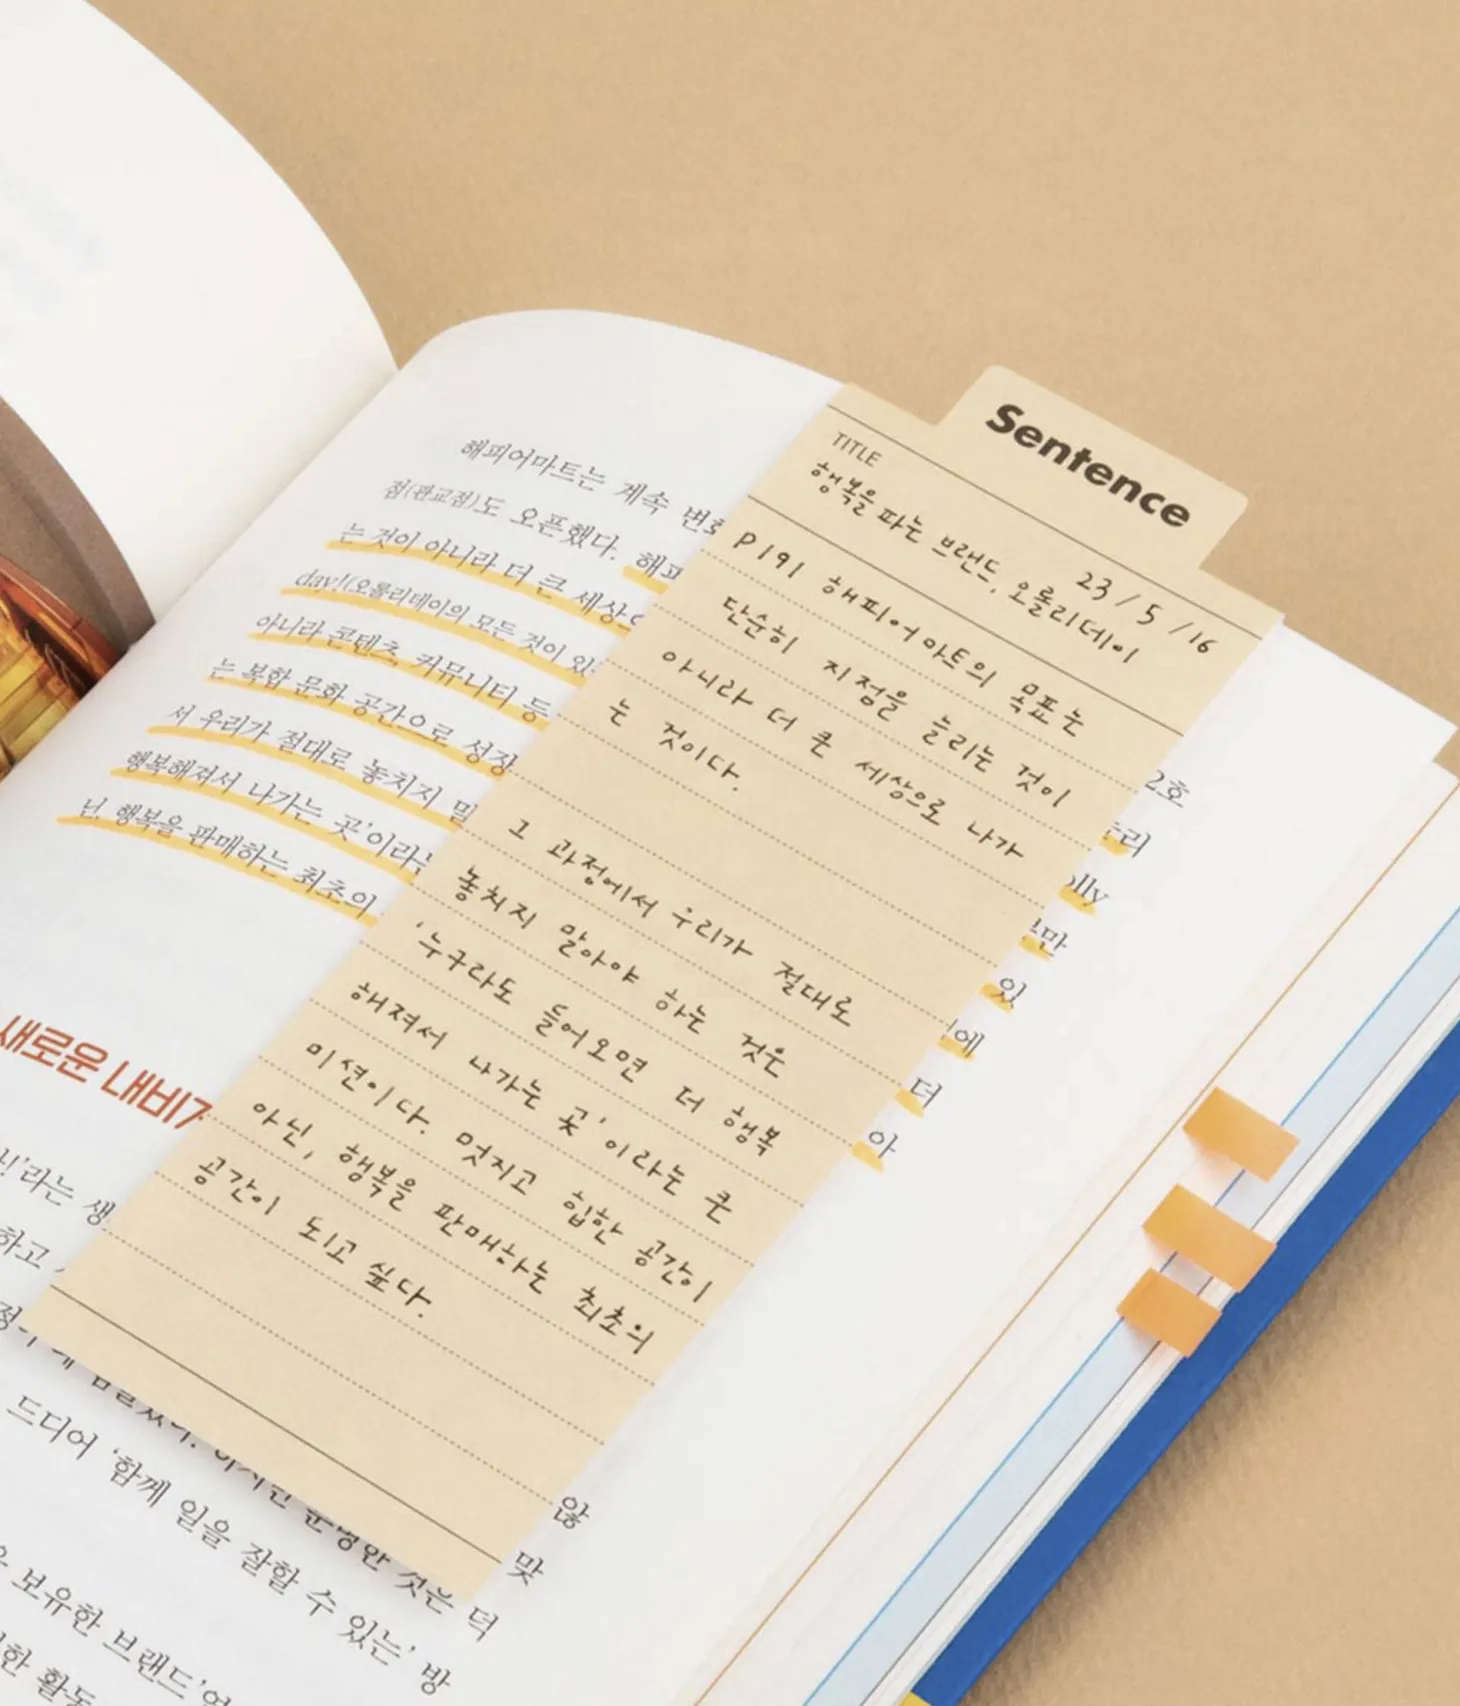 Sentence
TITLE
행복을 파는 브랜드, 오롤리데이
23/5/16
P191 해피어마트의 목표는
단순히 지점을 늘리는 것이
아니라 더 큰 세상으로 나가
는 것이다.
그 과정에서 우리가 절대로
놓치지 말아야 하는 것은
'누구라도 들어오면 더 행복
해져서 나가는 곳'이라는 큰
미션이다. 멋지고 힙한 공간이
아닌, 행복을 판매하는 최초의
공간이 되고 싶다.
해피어마트는 계속 변화
2호
점(판교점)도 오픈했다. 해피
리
는 것이 아니라 더 큰 세상으
olly
day!(오롤리데이의 모든 것이 있
만
아니라 콘텐츠, 커뮤니티 등
있
는 복합 문화 공간으로 성장
에
서 우리가 절대로 놓치지 말
더
행복해져서 나가는 곳'이라는
아
닌, 행복을 판매하는 최초의
새로운 내비게
'라는 생
하고
않
드디어 '함께 일을 잘할 수 있는' 방
맞
운명한 것은 덕
보유한 브랜드'
한 활동